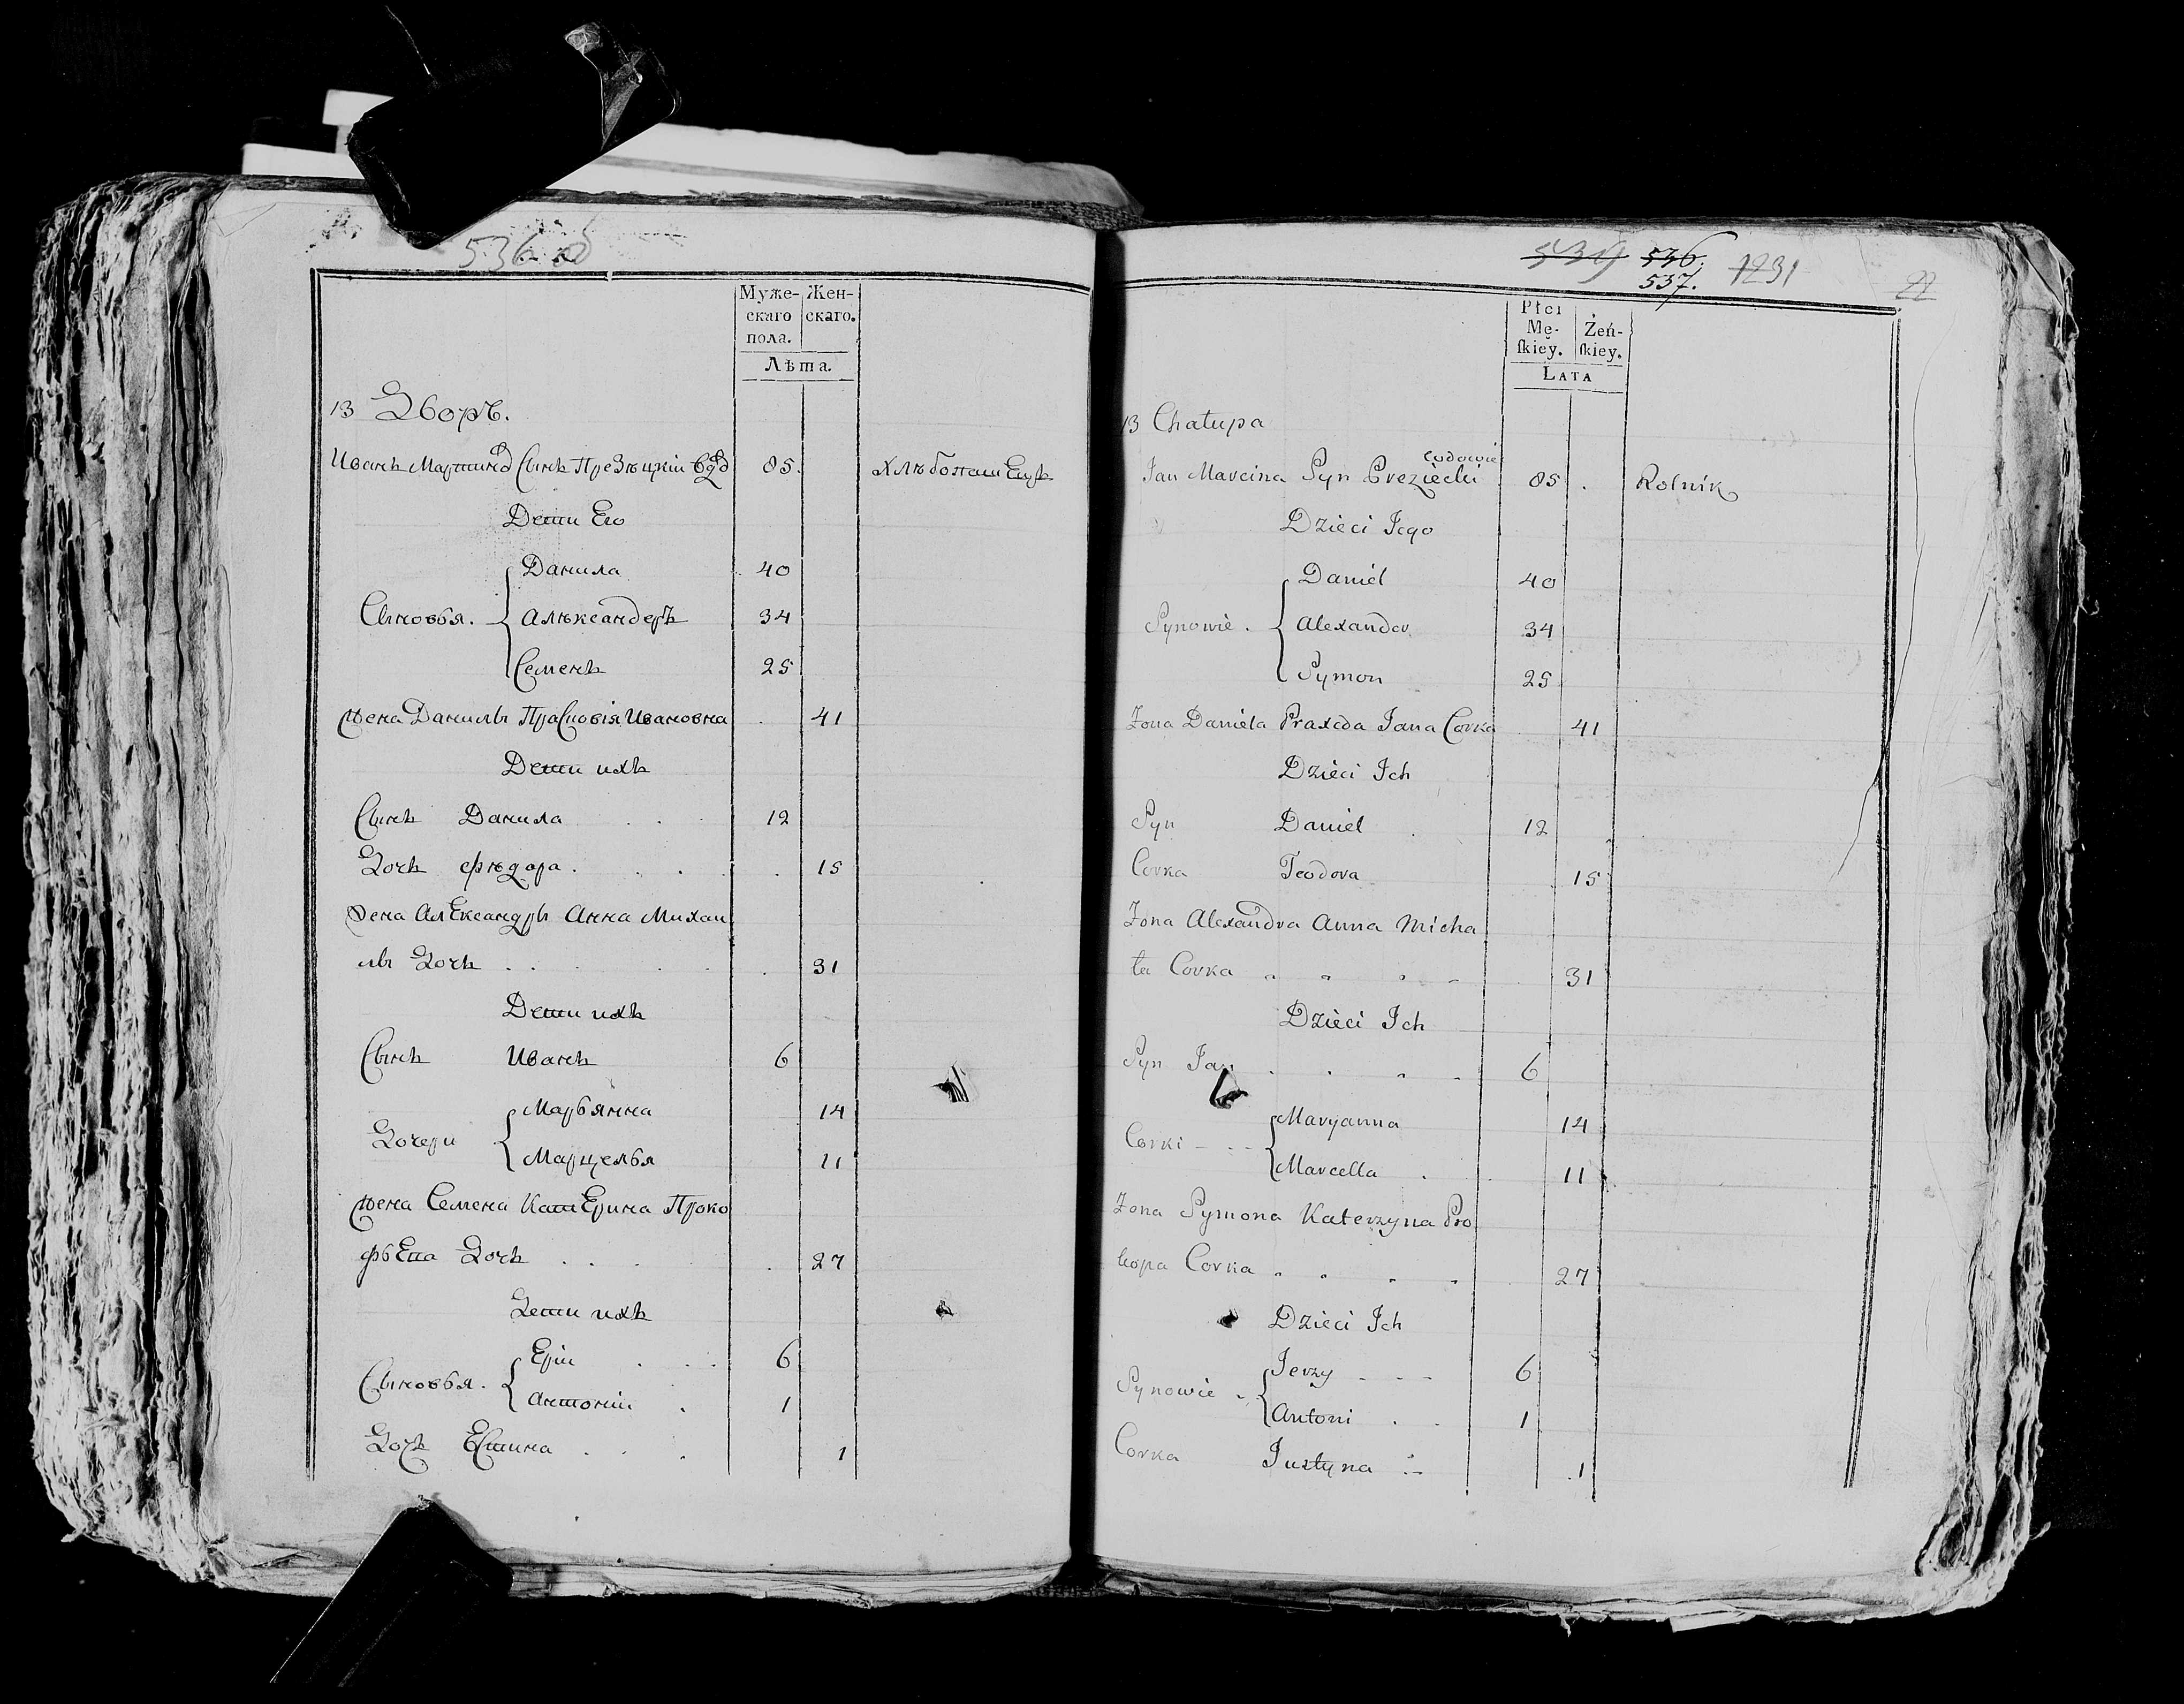 536 об
Муже-
скаго
пола.
Жен-
скаго.
Лѣта.
13 Дворъ.
Иванъ Мартина Сынъ Презѣцкiи 85. Хлѣбопашецъ
Дети Его
Данила 40
Сыновья. Алѣксандеръ 34
Семенъ 25
Жена Данилы Прасковiя Ивановна 41
Дети ихъ
Сынъ Данила 12
Дочь Фѣдора 15
Жена Алѣксандры Анна Михаи
лы Дочь 31
Дети ихъ
Сынъ Иванъ 6
Марьянна 14
Дочери
Марцелья 11
Жена Семена Катерина Проко
фьева Дочь 27
Дети ихъ
Ерiи 6
Сыновья.
Антонiи 1
Дочь Юстина 1
534 536. 1231
537. 22
Płci
Mę-
ſkiey.
Żeń-
ſkiey.
LATA
13 Chałupa
Jan Marcina Syn Preziecki 85 Rolnik
Dzieci Jego
Daniel 40
Synowie. Alexander 34
Symon 25
Zona Daniela Praxeda Jana Corka 41
Dzieci Ich
Syn Daniel 12
Corka Teodora 15
Zona Alexandra Anna Micha
ła Corka 31
Dzieci Ich
Syn Jan 6
Maryanna 14
Corki
Marcella 11
Zona Symona Katerzyna Pro
kopa Corka 27
Dzieci Ich
Jerzy 6
Synowie
Antoni 1
Corka Justyna 1